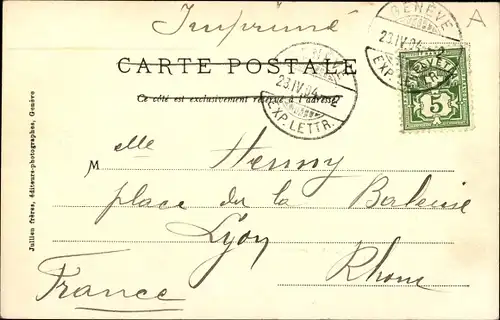 Imprimé
A
CARTE POSTALE
Ce côté est exclusivement réservé à l'adresse
GENÈVE
23.IV.04.-2
EXP. LETTR.
GENÈVE
23.IV.04.-2
EXP. LETTR.
HELVETIA
5
Melle Henny
place de la Baleine
Lyon
Rhone
France
Jullien frères, éditeurs-photographes, Genève